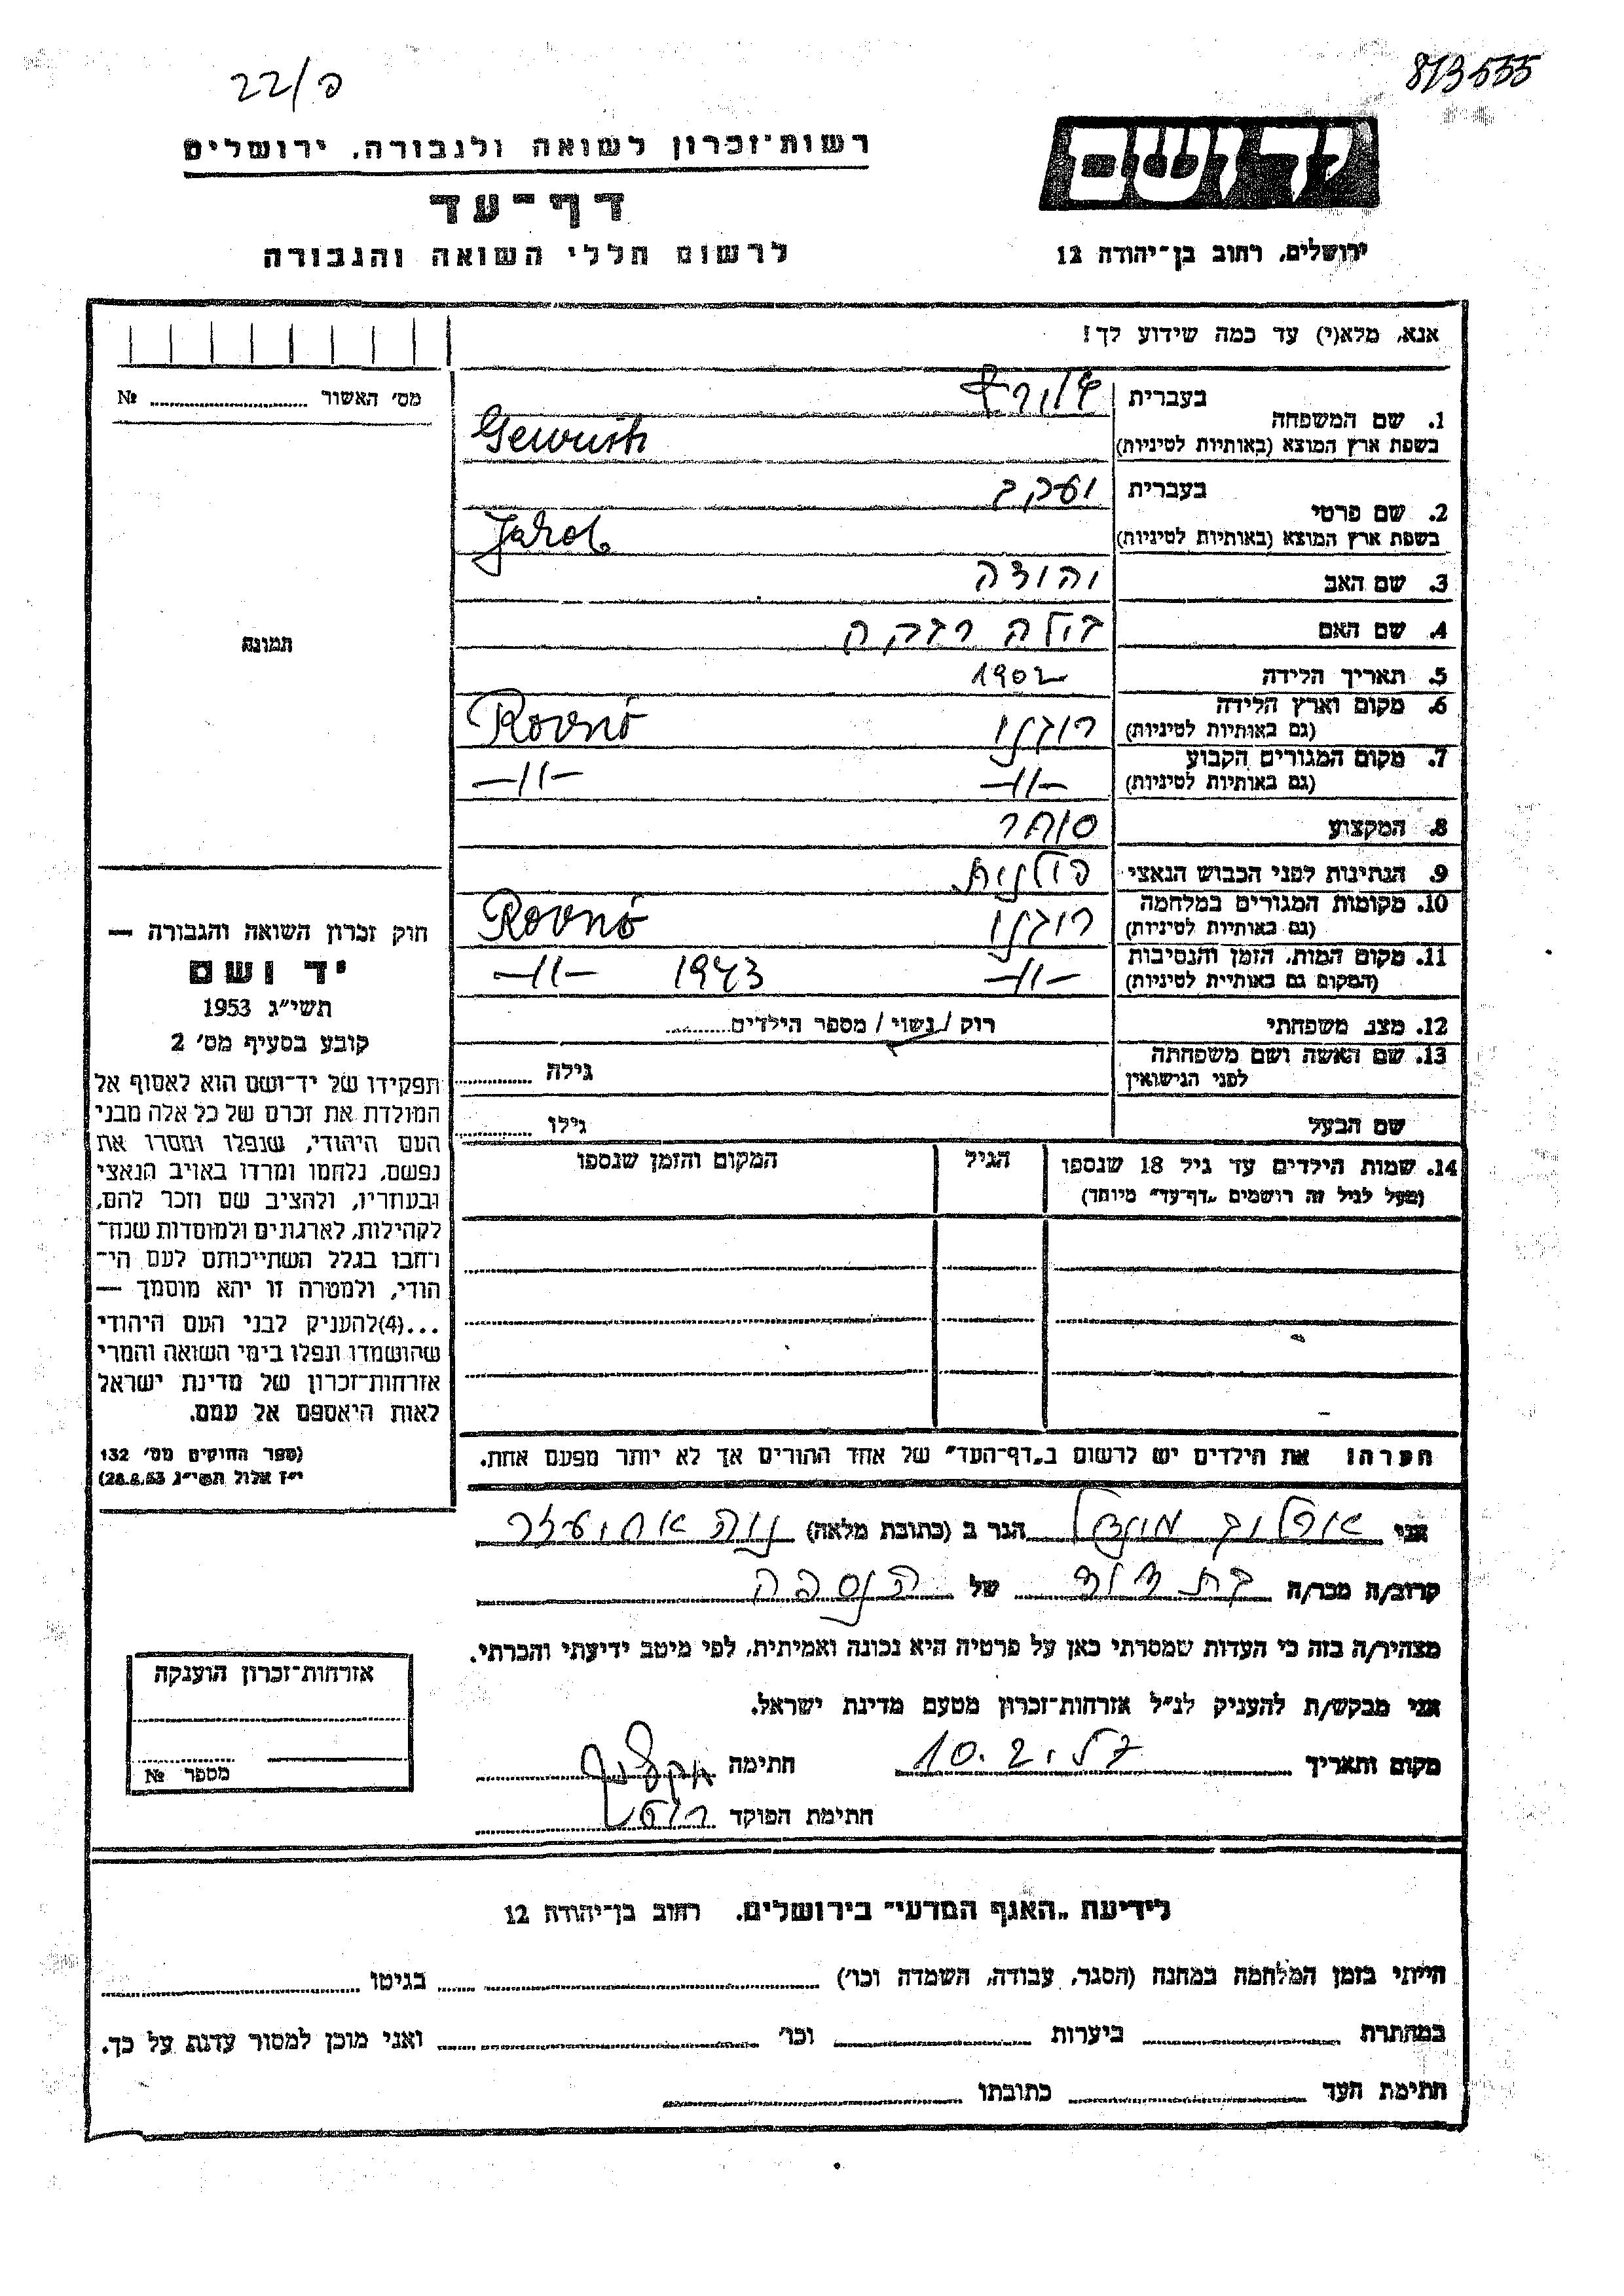 22/פ
873555
רשות־זכרון לשואה ולגבורה, ירושלים
דף־עד
לרשום חללי השואה והגבורה
יד ושם
ירושלים, רחוב בן־יהודה 12
אנא, מלא(י) עד כמה שידוע לך!
מס׳ האשור № 
1. שם המשפחה
בעברית
בשפת ארץ המוצא (באותיות לטיניות) Gewürtz
2. שם פרטי
בעברית יעקב
בשפת ארץ המוצא (באותיות לטיניות) Jakob
3. שם האב יהודה
4. שם האם רבקה
5. תאריך הלידה 1902
6. מקום וארץ הלידה (גם באותיות לטיניות) רובנו Rovnó
7. מקום המגורים הקבוע (גם באותיות לטיניות) –11– –11–
8. המקצוע סוחר
9. הנתינות לפני הכבוש הנאצי פולנית
10. מקומות המגורים במלחמה (גם באותיות לטיניות) רובנו Rovnó
11. מקום המות, הזמן והנסיבות (המקום גם באותיות לטיניות) –11– 1943 –11–
12. מצב משפחתי רוק / נשוי / מספר הילדים
13. שם האשה ושם משפחתה לפני הנישואין גילה
שם הבעל גילו
14. שמות הילדים עד גיל 18 שנספו
(מעל לגיל זה רושמים „דף־עד״ מיוחד)
הגיל
המקום והזמן שנספו
תמונה
חוק זכרון השואה והגבורה —
יד ושם
תשי״ג 1953
קובע בסעיף מס׳ 2
תפקידו של יד־ושם הוא לאסוף אל
המולדת את זכרם של כל אלה מבני
העם היהודי, שנפלו ומסרו את
נפשם, נלחמו ומרדו באויב הנאצי
ובעוזריו, ולהציב שם וזכר להם,
לקהילות, לארגונים ולמוסדות שנח־
רבו בגלל השתייכותם לעם הי־
הודי, ולמטרה זו יהא מוסמך —
...(4)להעניק לבני העם היהודי
שהושמדו ונפלו בימי השואה והמרי
אזרחות־זכרון של מדינת ישראל
לאות היאספם אל עמם.
(ספר החוקים מס׳ 132
י״ז אלול תשי״ג 28.8.53)
הערה! את הילדים יש לרשום ב„דף־העד״ של אחד ההורים אך לא יותר מפעם אחת.
אני הגר ב (כתובת מלאה) נוה אחיעזר
קרוב/ה מכר/ה בת דוד של הנספה
מצהיר/ה בזה כי העדות שמסרתי כאן על פרטיה היא נכונה ואמיתית, לפי מיטב ידיעתי והכרתי.
אני מבקש/ת להעניק לנ״ל אזרחות־זכרון מטעם מדינת ישראל.
מקום ותאריך 10.2. חתימה
חתימת הפוקד
אזרחות־זכרון הוענקה
מספר №
לידיעת „האגף המדעי״ בירושלים, רחוב בן־יהודה 12
הייתי בזמן המלחמה במחנה (הסגר, עבודה, השמדה וכו׳) בגיטו
במחתרת ביערות וכו׳ ואני מוכן למסור עדות על כך.
חתימת העד כתובתו